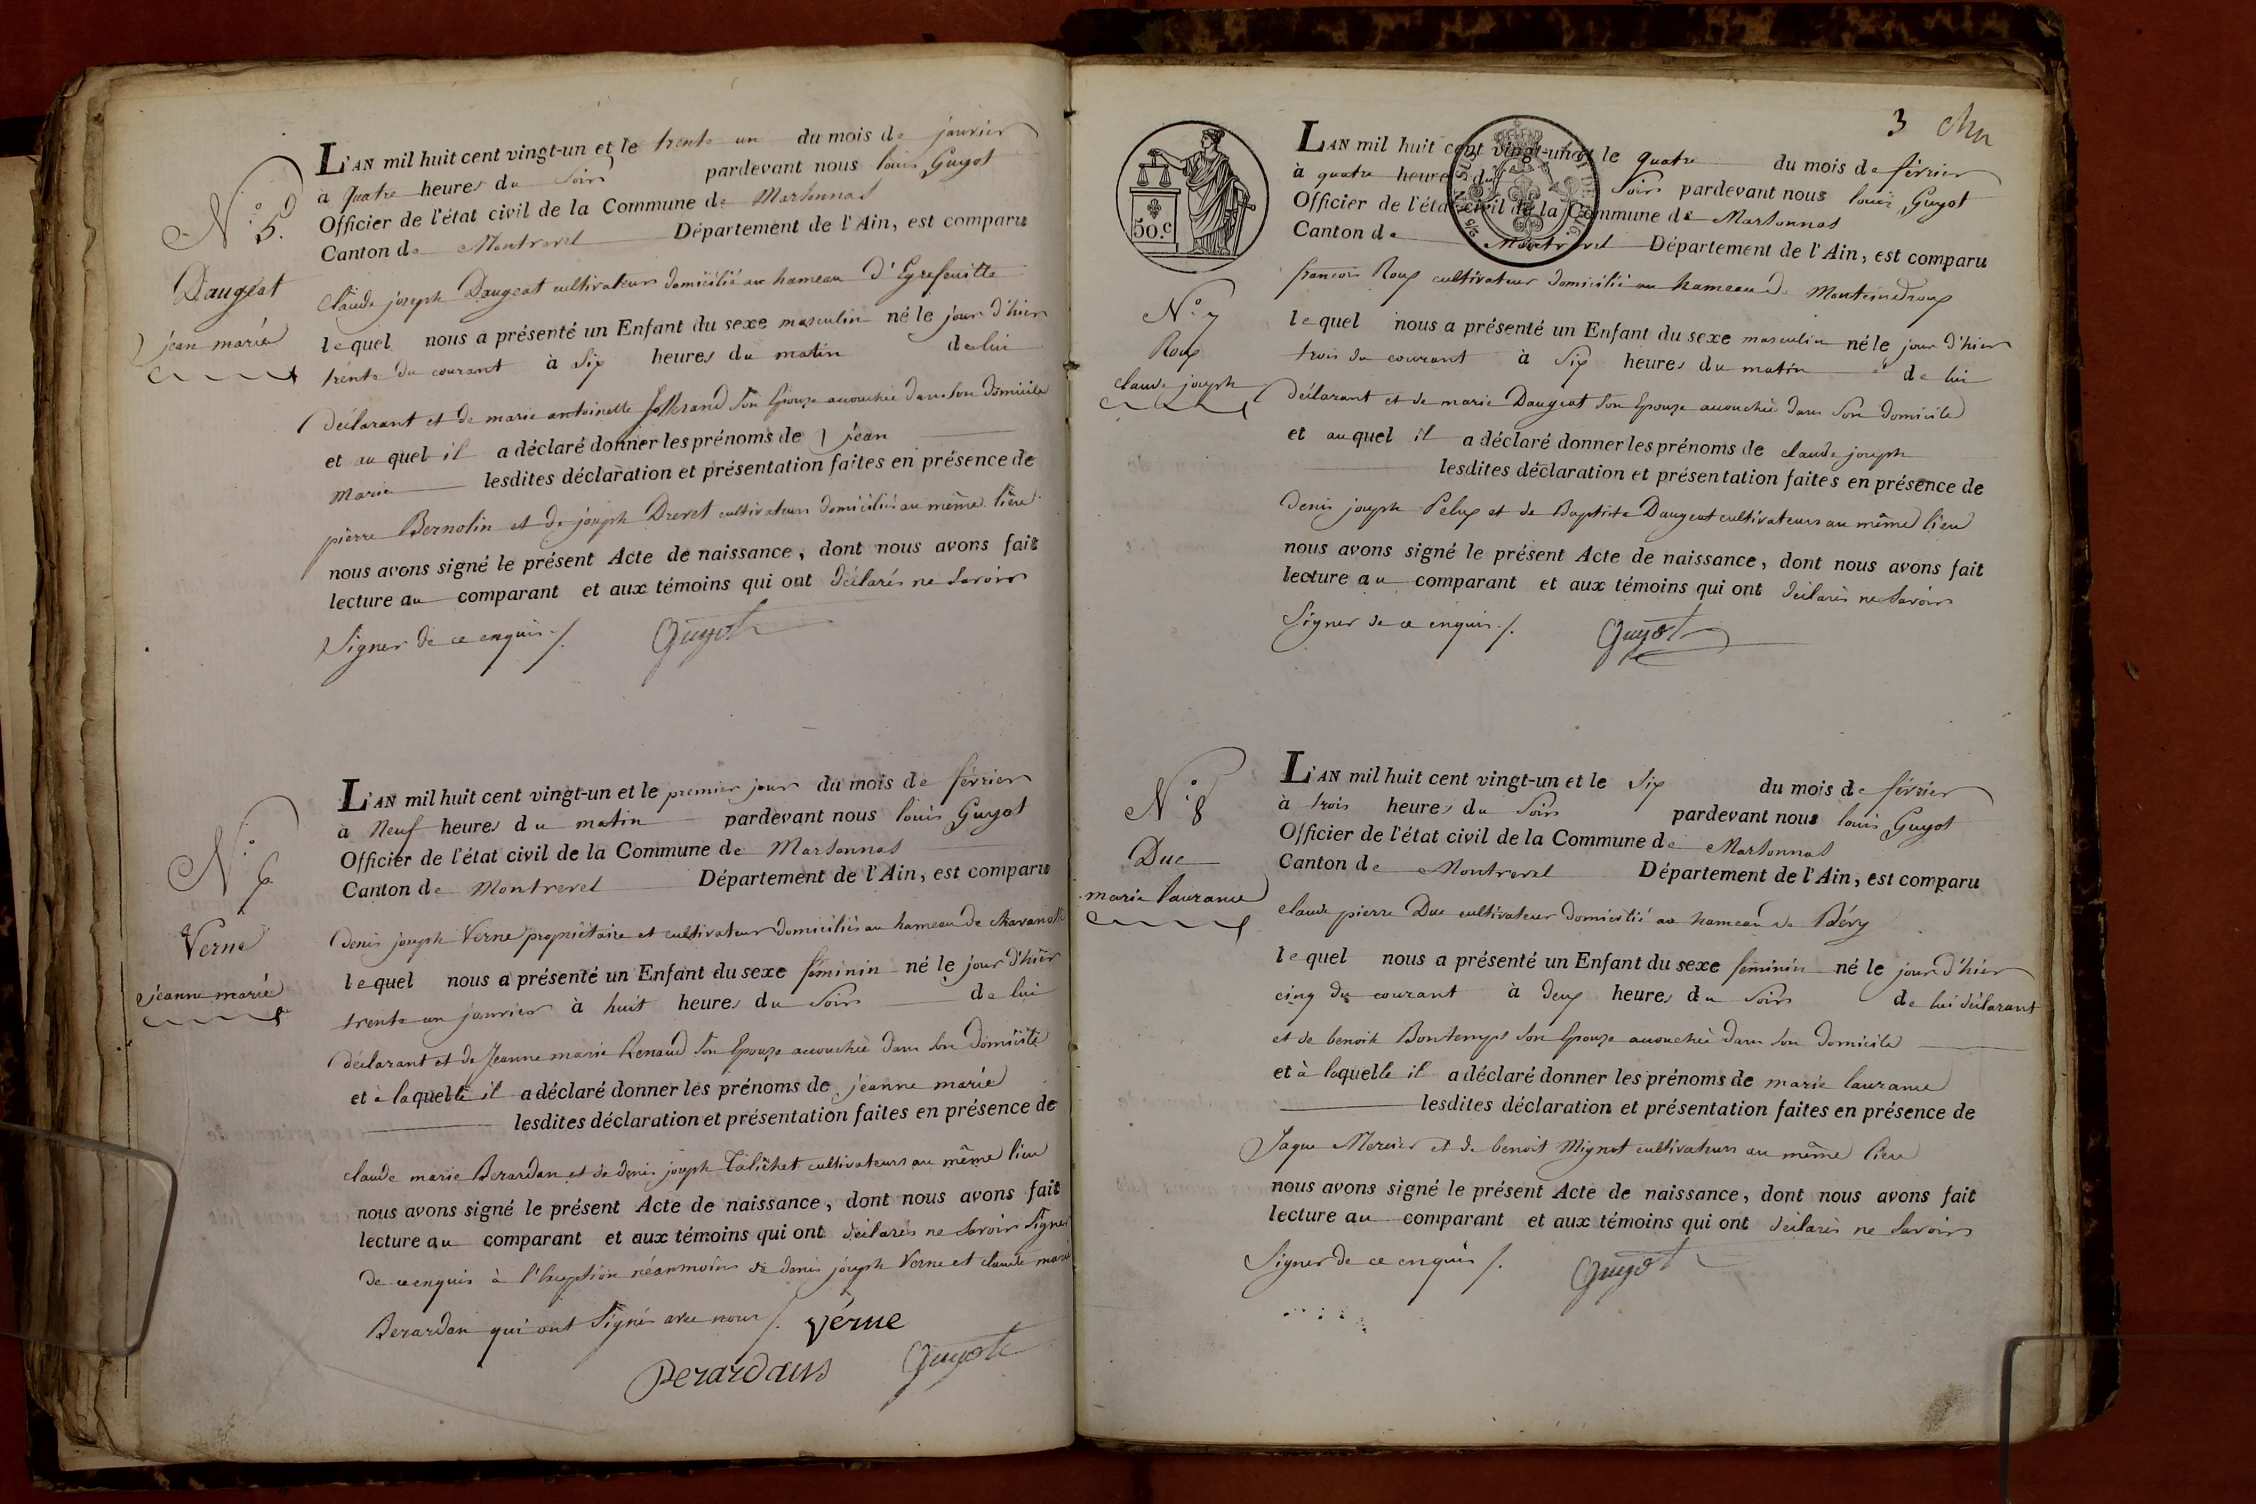 N.° 5.
Daugeat
jean marie
L'AN mil huit cent vingt-un et le trente un du mois de janvier
à quatre heures du soir pardevant nous louis Guyot
Officier de l'état civil de la Commune de Marsonnas
Canton de Montrevel Département de l'Ain, est comparu
Claude joseph Daugeat cultivateur domicilié au hameau d'Egrefeuille
lequel nous a présenté un Enfant du sexe masculin né le jour d'hier
trente du courant à six heures du matin de lui
déclarant et de marie antoinette son Epouze accouchée dans son domicile
et au quel il a déclaré donner les prénoms de jean
marie lesdites déclaration et présentation faites en présence de
pierre Bernolin et de joseph Drevet cultivateurs domiciliés au même lieu
nous avons signé le présent Acte de naissance, dont nous avons fait
lecture au comparant et aux témoins qui ont déclarés ne savoir
signer de ce enquis ./. Guyot
N.° 6
Verne
jeanne marie
L'AN mil huit cent vingt-un et le premier jour du mois de février
à Neuf heures du matin pardevant nous louis Guyot
Officier de l'état civil de la Commune de Marsonnas
Canton de Montrevel Département de l'Ain, est comparu
denis joseph Verne propriétaire et cultivateur domiciliés au hameau de
lequel nous a présenté un Enfant du sexe féminin né le jour d'hier
trente un janvier à huit heures du soir de lui
déclarant et de Jeanne marie Renaud son Epouze accouchée dans son domicile
et à laquelle il a déclaré donner les prénoms de jeanne marie
lesdites déclaration et présentation faites en présence de
claude marie Berardan et de denis joseph cultivateurs au même lieu
nous avons signé le présent Acte de naissance, dont nous avons fait
lecture au comparant et aux témoins qui ont déclarés ne savoir signer
de ce enquis à l'Exception néanmoins de denis joseph Verne et claude marie
Berardan qui ont signés avec nous ./. Verne
Berardan Guyot
3
50.c
N.° 7
Roux
claude joseph
L'AN mil huit cent vingt-un et le quatre du mois de février
à quatre heures du soir pardevant nous louis Guyot
Officier de l'état civil de la Commune de Marsonnas
Canton de Montrevel Département de l'Ain, est comparu
françois Roux cultivateur domicilié au hameau de
lequel nous a présenté un Enfant du sexe masculin né le jour d'hier
trois du courant à six heures du matin de lui
déclarant et de marie Daugeat son Epouze accouchée dans son domicile
et au quel il a déclaré donner les prénoms de claude joseph
lesdites déclaration et présentation faites en présence de
denis joseph Pelux et de Baptiste Daugeat cultivateurs au même lieu
nous avons signé le présent Acte de naissance, dont nous avons fait
lecture au comparant et aux témoins qui ont déclarés ne savoir
signer de ce enquis ./. Guyot
N.° 8
Duc
marie laurance
L'AN mil huit cent vingt-un et le six du mois de février
à trois heures du soir pardevant nous louis Guyot
Officier de l'état civil de la Commune de Marsonnas
Canton de Montrevel Département de l'Ain, est comparu
claude pierre Duc cultivateur domicilié au hameau de Bévy
lequel nous a présenté un Enfant du sexe féminin né le jour d'hier
cinq du courant à deux heures du soir de lui déclarant
et de benoite Bontemps son Epouze accouchée dans son domicile
et à laquelle il a déclaré donner les prénoms de marie laurance
lesdites déclaration et présentation faites en présence de
Jaque Mercier et de benoit Mignot cultivateurs au même lieu
nous avons signé le présent Acte de naissance, dont nous avons fait
lecture au comparant et aux témoins qui ont déclarés ne savoir
signer de ce enquis ./. Guyot